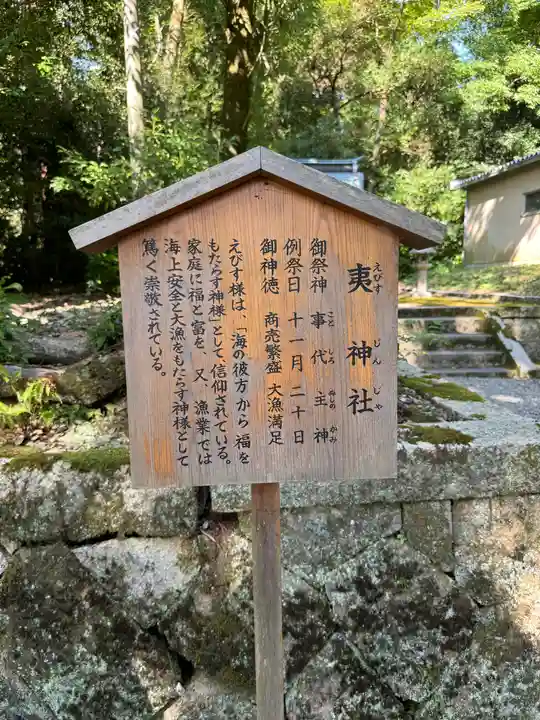 夷神社
えびすじんじや
御祭神 事代主神
ことしろぬしのかみ
例祭日 十一月二十日
御神徳 商売繁盛 大漁満足
えびす様は、「海の彼方から福を
もたらす神様」として、信仰されている。
家庭に福と富を、又、漁業では
海上安全と大漁をもたらす神様として
篤く崇敬されている。